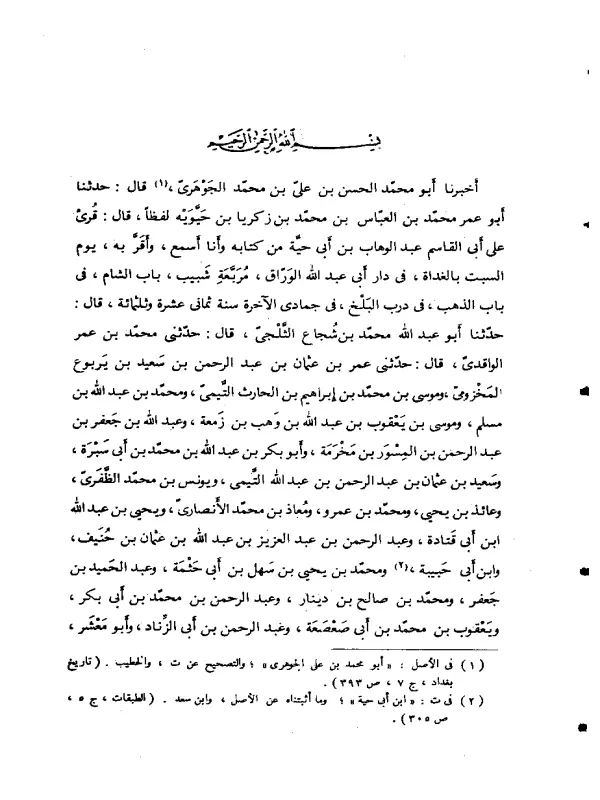 بسم الله الرحمن الرحيم
أخبرنا أبو محمّد الحسن بن علىّ بن محمّد الجَوْهَرىّ ،(١) قال : حدثنا
أبو عمر محمّد بن العبّاس بن محمّد بن زكريا بن حَيُّوَيْه لفظاً ، قال : قُرئ
على أبى القاسم عبد الوهاب بن أبى حيَّة من كتابه وأنا أسمع ، وأقرَّ به ، يوم
السبت بالغداة ، فى دار أبى عبد الله الورّاق ، مُرَبَّعَةِ شَبيب ، باب الشام ، فى
باب الذهب ، فى درب البَلْخ ، فى جمادى الآخرة سنة ثمانى عشرة وثلثمائة ، قال :
حدّثنا أبو عبد الله محمّد بن شُجاع الثَّلْجىّ ، قال : حدّثنى محمّد بن عمر
الواقدىّ ، قال : حدّثنى عمر بن عثمان بن عبد الرحمن بن سَعيد بن يَربوع
المَخْزومىّ ، وموسى بن محمّد بن إبراهيم بن الحارث التَّيمىّ ، ومحمّد بن عبد الله بن
مسلم ، وموسى بن يَعْقوب بن عبد الله بن وَهْب بن زَمعة ، وعبد الله بن جَعفر بن
عبد الرحمن بن المِسْوَر بن مَخْرَمة ، وأبو بكر بن عبد الله بن محمّد بن أبى سَبْرة ،
وسَعيد بن عثمان بن عبد الرحمن بن عبد الله التَّيمى ، ويونس بن محمّد الظَّفَرىّ ،
وعائذ بن يحيى ، ومحمّد بن عمرو ، ومُعاذ بن محمّد الأنصارىّ ، ويحيى بن عبد الله
ابن أبى قَتادة ، وعبد الرحمن بن عبد العزيز بن عبد الله بن عثمان بن حُنَيف ،
وابن أبى حَبيبة ،(٢) ومحمّد بن يحيى بن سَهل بن أبى حَثْمة ، وعبد الحَميد بن
جَعفر ، ومحمّد بن صالح بن دينار ، وعبد الرحمن بن محمّد بن أبى بكر ،
ويَعْقوب بن محمّد بن أبى صَعْصَعة ، وعَبد الرحمن بن أبى الزِّناد ، وأبو مَعْشَر ،
(١) فى الأصل : «أبو محمد بن على الجوهرى» ؛ والتصحيح عن ت ، والخطيب . (تاريخ
بغداد ، ج ٧ ، ص ٣٩٣) .
(٢) فى ت : «ابن أبى حية» ؛ وما أثبتناه عن الأصل ، وابن سعد . (الطبقات ، ج ٥ ،
ص ٣٠٥) .